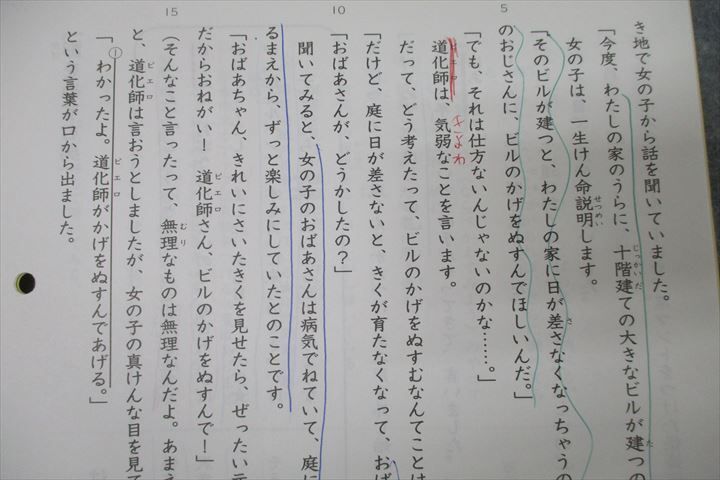 き地で女の子から話を聞いていました。
「今度、わたしの家のうらに、十階建ての大きなビルが建つの
女の子は、一生けん命説明します。
「そのビルが建つと、わたしの家に日が差さなくなっちゃうの
のおじさんに、ビルのかげをぬすんでほしいんだ。」
「でも、それは仕方ないんじゃないのかな……。」
道化師は、気弱なことを言います。
だって、どう考えたって、ビルのかげをぬすむなんてことは
「だけど、庭に日が差さないと、きくが育たなくなって、おば
「おばあさんが、どうかしたの？」
聞いてみると、女の子のおばあさんは病気でねていて、庭に
るまえから、ずっと楽しみにしていたとのことです。
「おばあちゃん、きれいにさいたきくを見せたら、ぜったい元
だからおねがい！　道化師さん、ビルのかげをぬすんで！」
（そんなこと言ったって、無理なものは無理なんだよ。あきえ
と、道化師は言おうとしましたが、女の子の真けんな目を見て
「わかったよ。道化師がかげをぬすんであげる。」
という言葉が口から出ました。
じっかいだ
た
せつめい
さ
ピエロ
きよわ
ピエロ
むり
ピエロ
ピエロ
①
5
10
15